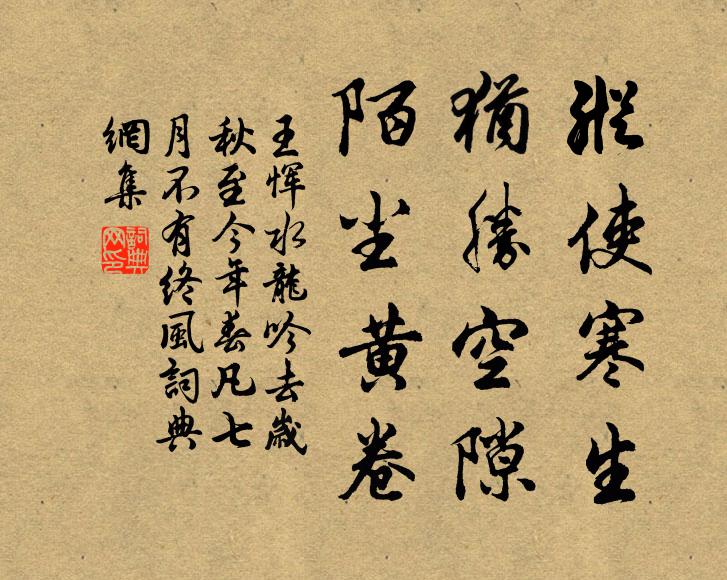 縱使寒生
猶勝空隙
陌尘黄卷
王惲水龍吟去歲
秋至今年春凡七
月不有终風詞典
網集
詞典网印